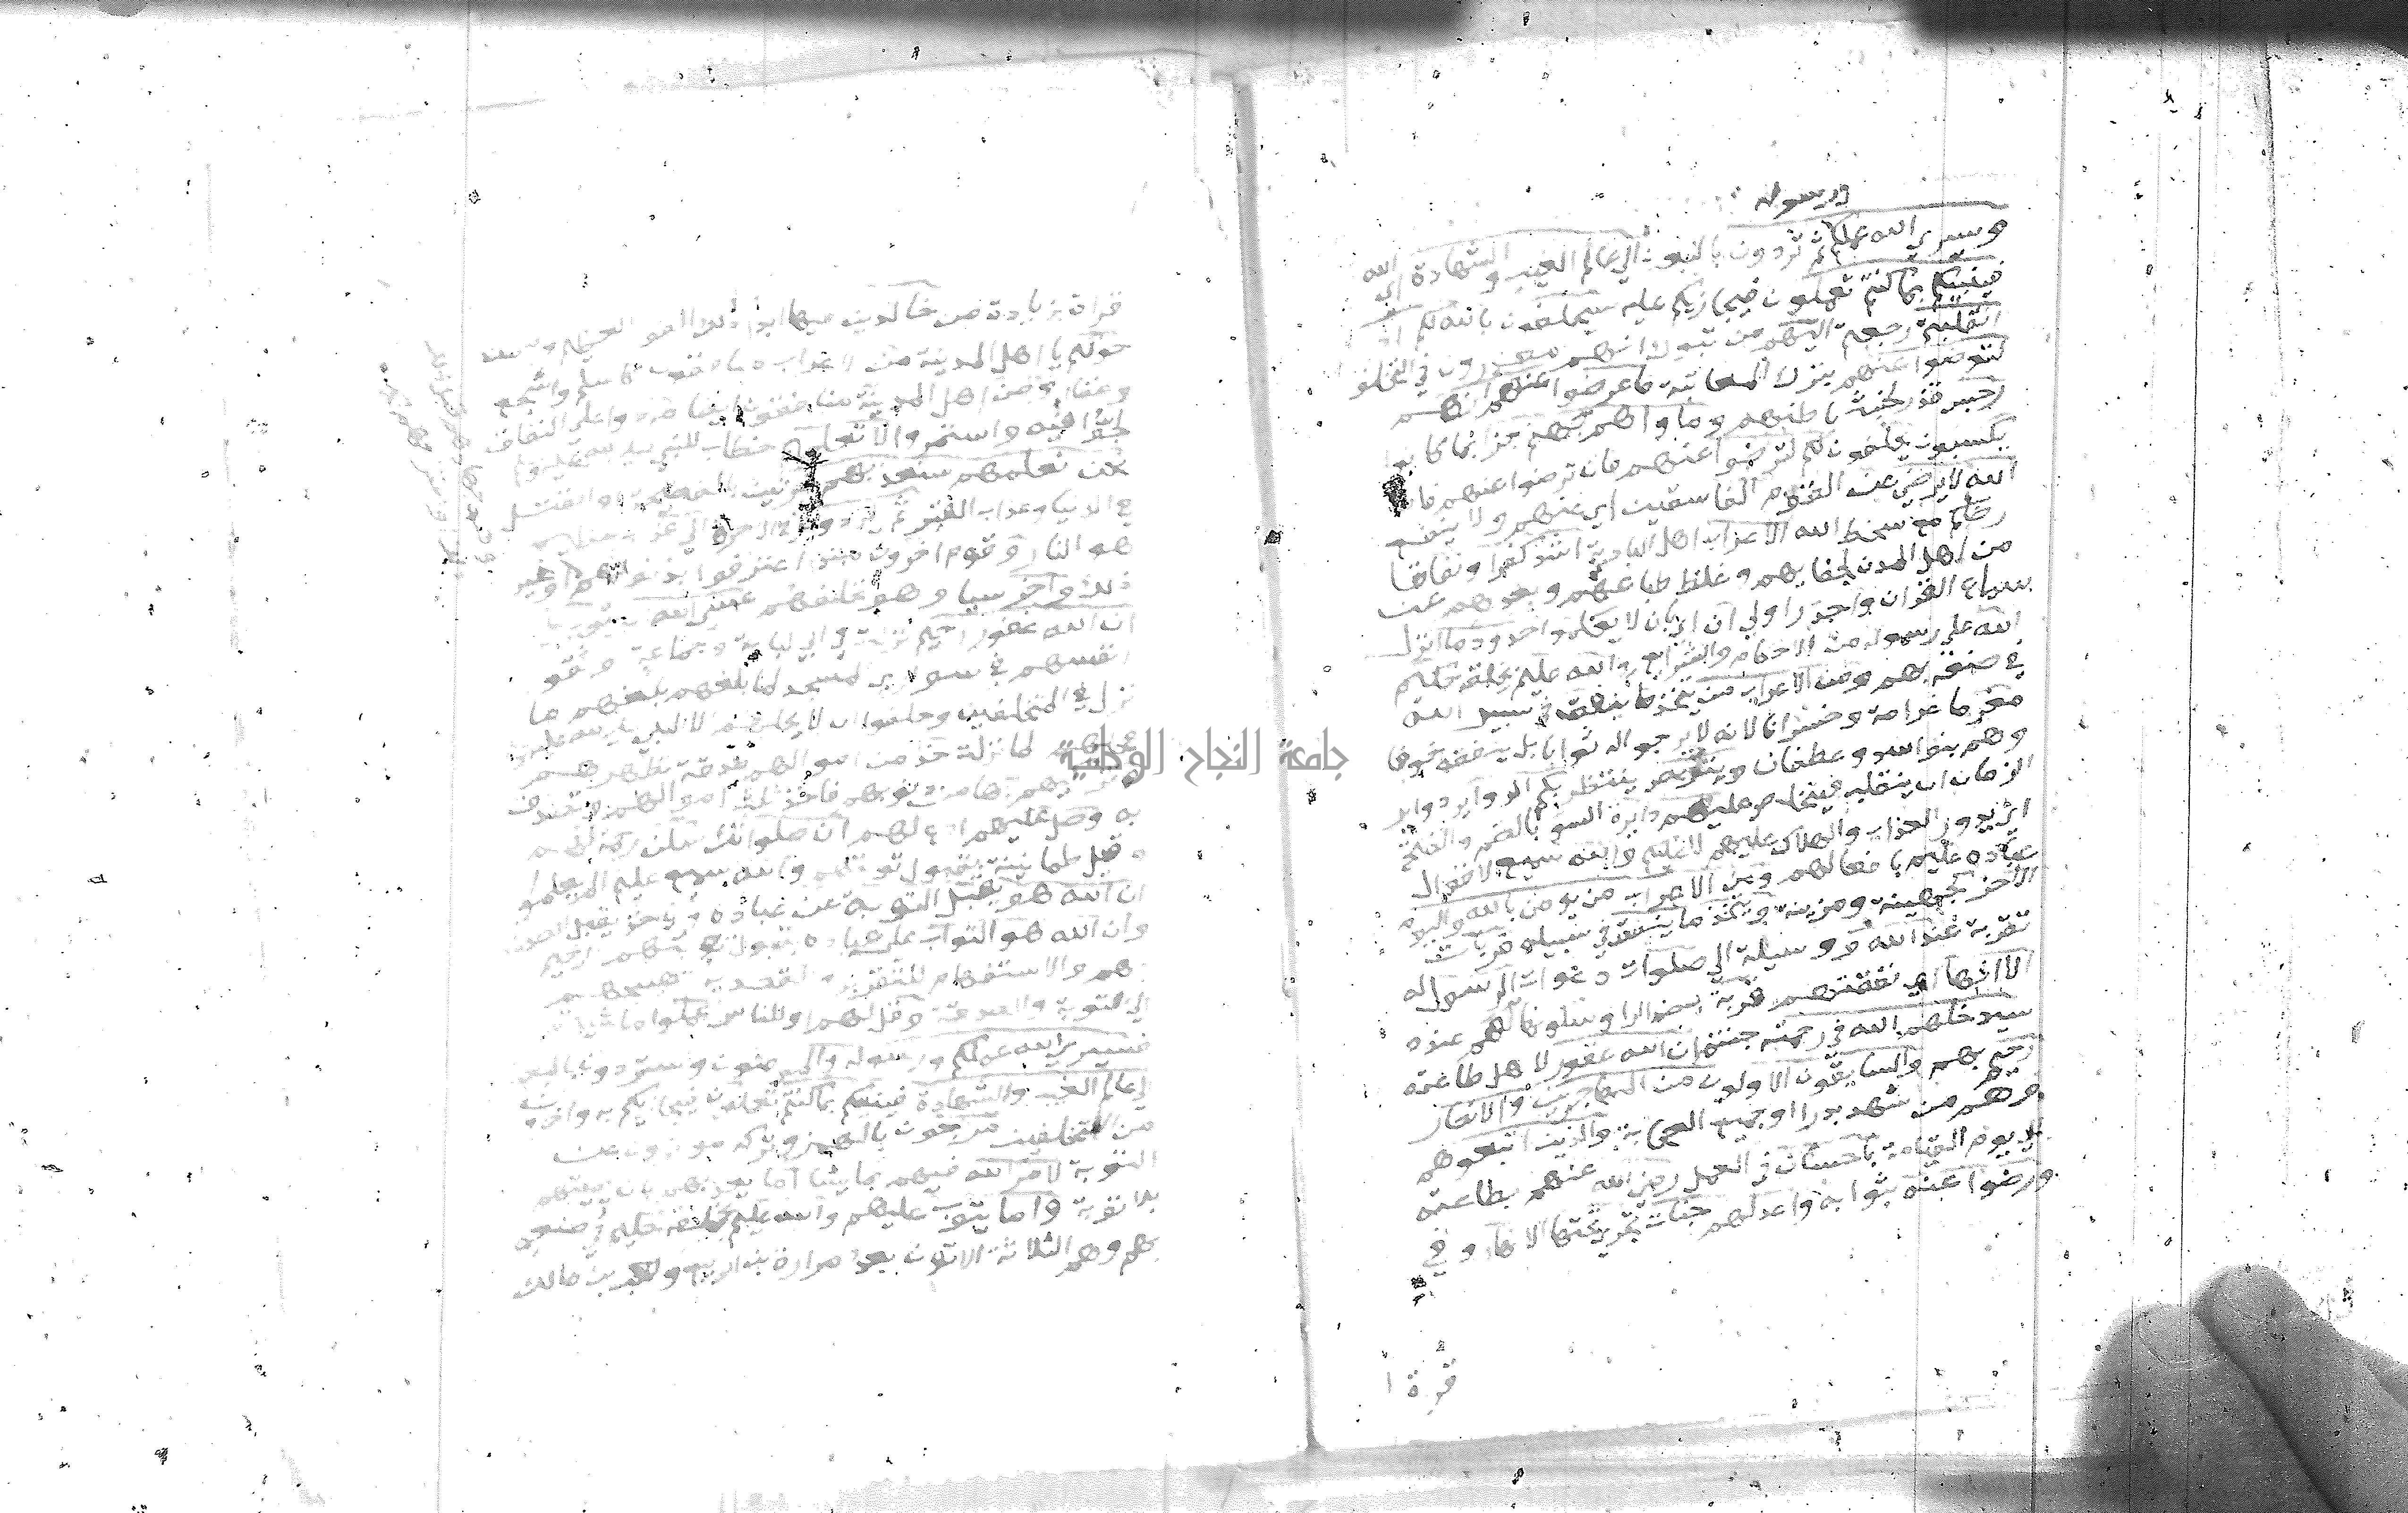 ورسوله
وسيري الله عملكم ثم تردون بالبعث الي عالم الغيب والشهادة اي الله
فينبئكم بما كنتم تعملون فيجازيكم عليه سيحلفون بالله لكم اذا
انقلبتم رجعتم اليهم من تبوك انهم معذورون في التخلف
لتعرضوا عنهم بترك المعاتبة فاعرضوا عنهم انهم
رجس قذر لخبث باطنهم وماواهم جهنم جزا بما كانوا
يكسبون يحلفون لكم لترضوا عنهم فان ترضوا عنهم فان
الله لا يرضي عن القوم الفاسقين اي عنهم ولا ينفع
رضاكم مع سخط الله الاعراب اهل البادية اشد كفرا ونفاقا
من اهل المدن لجفايهم وغلظ طباعهم وبعدهم عن
سماع القران واجدر اولي ان اي بان لا يعلموا حدود ما انزل
الله علي رسوله من الاحكام والشرايع والله عليم بخلقه حكيم
في صنعه بهم ومن الاعراب من يتخذ ما ينفق في سبيل الله
مغرما غرامة وخسرانا لانه لا يرجوا له ثوابا بل ينفقه خوفا
وهم بنوا اسد وغطفان ويتربص ينتظر بكم الدواير دواير
الزمان ان ينقلب فيتخلص عليهم دايرة السو بالضم والفتح
اي يدور العذاب والهلاك عليهم لا عليكم والله سميع لاقوال
عباده عليم بافعالهم ومن الاعراب من يومن بالله واليوم
الآخر كجهينة ومزينة ويتخذ ما ينفق في سبيله قربات
تقربه عند الله ووسيلة الي صلوات دعوات الرسول له
الا انها اي نفقتهم قربة بضم الرا وسكونها لهم عنده
سيدخلهم الله في رحمته جنته ان الله غفور لاهل طاعته
رحيم بهم والسابقون الاولون من المهاجرين والانصار
وهم من شهد بدرا او جميع الصحابة والذين اتبعوهم
الي يوم القيامة باحسان في العمل رضي الله عنهم بطاعته
ورضوا عنه بثوابه واعد لهم جنات تجري تحتها الانهار وفي
قراة
قراة بزيادة من خالدين فيها ابدا ذلك الفوز العظيم وممن
حولكم يا اهل المدينة من الاعراب منافقون كاسلم واشجع
وغفار ومن اهل المدينة منافقون ايضا مردوا علي النفاق
لجوا فيه واستمروا لا تعلمهم خطاب للنبي
نحن نعلمهم سنعذبهم مرتين بالفضيحة او القتل
في الدنيا وعذاب القبر ثم يردون في الاخرة الي عذاب عظيم
هو النار وقوم اخرون مبتدا اعترفوا بذنوبهم
ذلك واخر سيا وهو تخلفهم عسي الله ان يتوب
ان الله غفور رحيم نزلت في ابي لبابة وجماعة اوثقوا
انفسهم في سواري المسجد لما بلغهم ما
نزل في المتخلفين وحلفوا ان لا يحلهم الا النبي
لما نزلت خذ من اموالهم صدقة تطهرهم
وتزكيهم بها من ذنوبهم فاخذ ثلث اموالهم وتصدق
به وصل عليهم ادع لهم ان صلواتك سكن رحمة لهم
وقيل طمانينة بقبول توبتهم والله سميع عليم الم يعلموا
ان الله هو يقبل التوبة عن عباده وياخذ يقبل الصدقات
وان الله هو التواب علي عباده بقبول توبتهم الرحيم
بهم والاستفهام للتقرير والقصد به تهييجهم
الي التوبة والصدقة وقل لهم او للناس اعملوا ما شيتم
فسيري الله عملكم ورسوله والمومنون وستردون بالبعث
الي عالم الغيب والشهادة فينبئكم بما كنتم تعملون فيجازيكم به واخرون
من المتخلفين مرجون بالهمز وتركه موخرون عن
التوبة لامر الله فيهم بما يشا اما يعذبهم بان يميتهم
بلا توبة واما يتوب عليهم والله عليم بخلقه حكيم في صنعه
بهم وهم الثلاثة الاتون بعد مرارة بن الربيع وكعب بن مالك
جامعة النجاح الوطنية